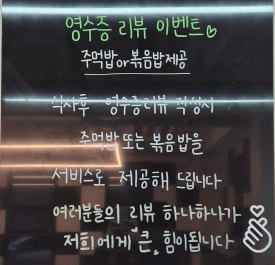 영수증 리뷰 이벤트
주먹밥 or 볶음밥 제공
식사후 영수증리뷰 작성시
주먹밥 또는 볶음밥을
서비스로 제공해 드립니다
여러분들의 리뷰 하나하나가
저희에게 "큰" 힘이됩니다